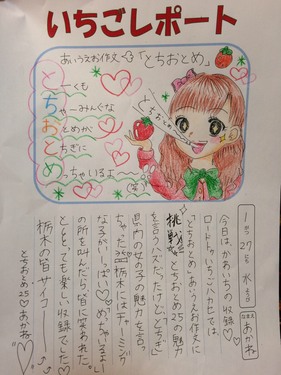 いちごレポート
あいうえお作文「とちおとめ」
とーくも
ちゃーみんぐな
おとめが
とちぎに
めっちゃいるよ
(笑)
とちおとめ
1月27日 水曜日
なまえ あかね
今日は、かおいちの収録♡
ロートルのいちごハカセでは、
「とちおとめ」あいうえお作文に
挑戦 とちおとめ25の魅力
を言うハズだったけど、とちぎ
県内の女の子の魅力を言っ
ちゃった 栃木にはチャーミング
な子がいっぱい♡めっちゃいるよ!
の所を叫んだら、皆に笑われた。
とっても楽しい収録でした♡
栃木の皆サイコー
とちおとめ25♡あかね